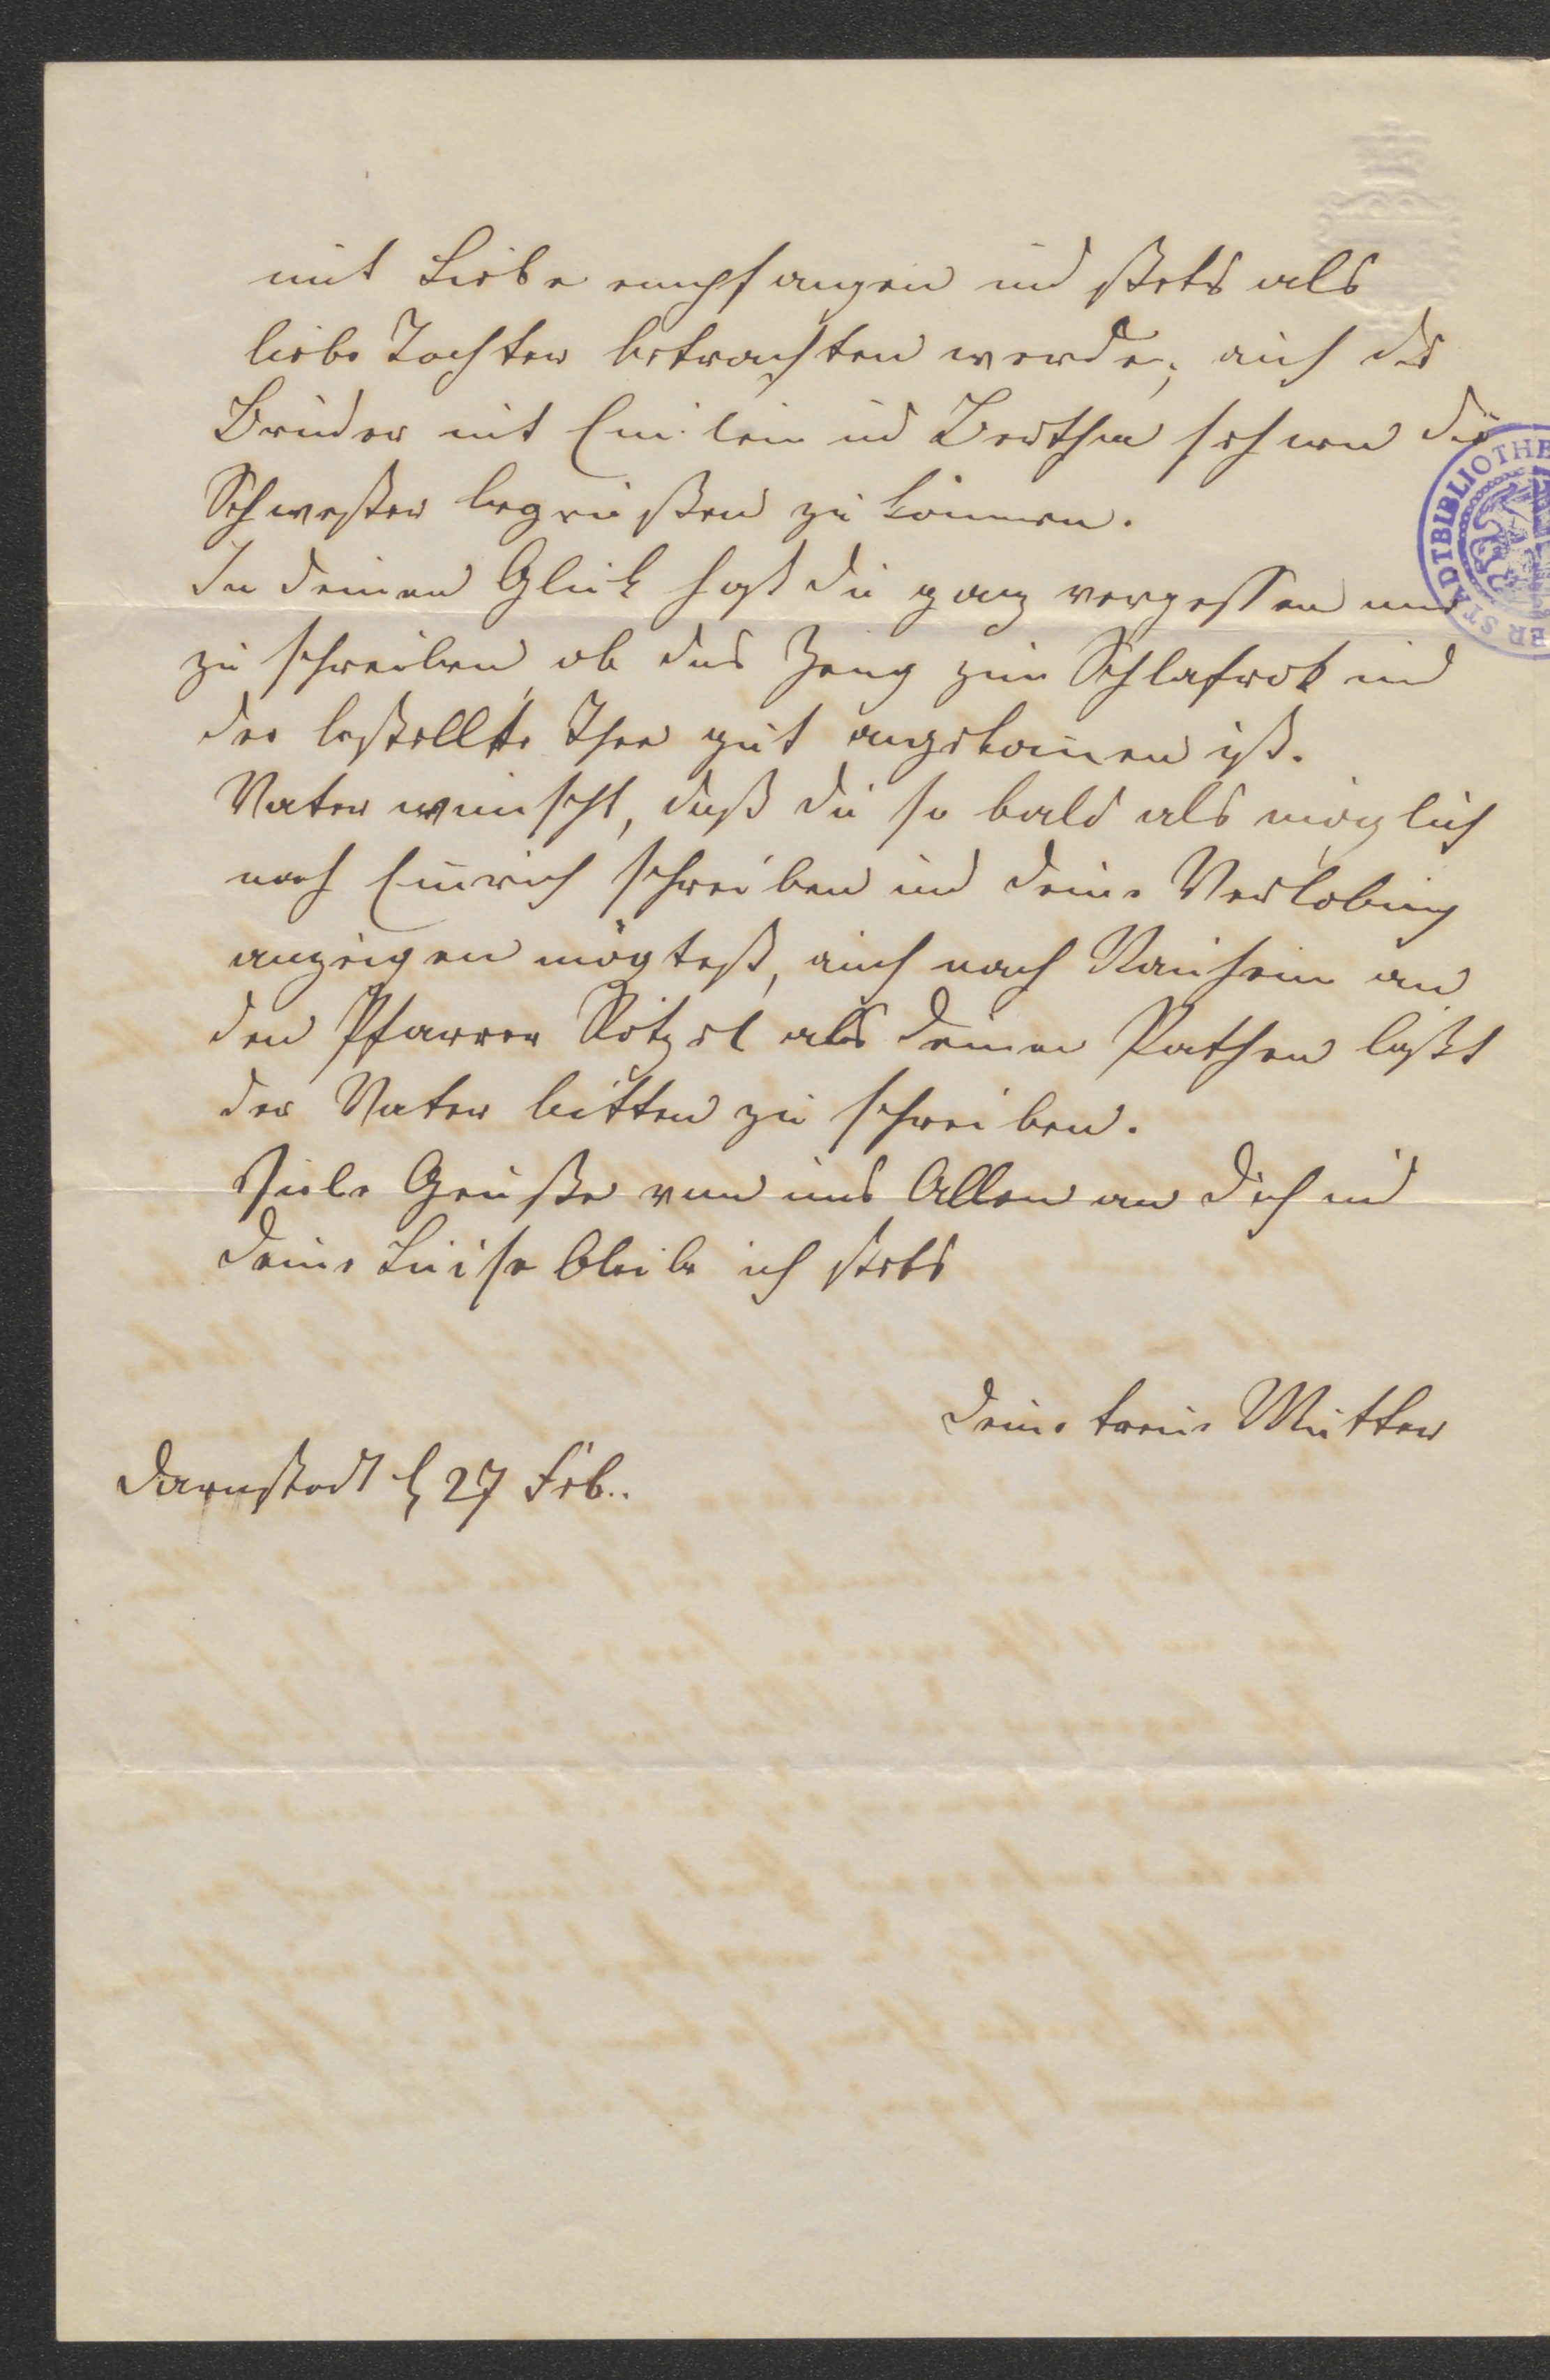 mit Liebe empfangen und stets als
liebe Tochter betrachten werde; auch der
Bruder mit und Bertha sehnen die
Schwester begrüßen zu können.
In deinem Glück hast du ganz vergessen uns
zu schreiben ob das Zeug zum Schlafrok und
der bestellte Thee gut angekommen ist.
Vater wünscht, daß du so bald als möglich
nach schreiben und deine Verlobung
anzeigen mögtest, auch nach an
den Pfarrer als deinen Pathen läßt
der Vater bitten zu schreiben.
Viele Grüße von uns Allen an dich und
deine Luise bleibe ich stets
deine treue Mutter
Darmstadt d 27 Feb..
STADTBIBLIOTHE